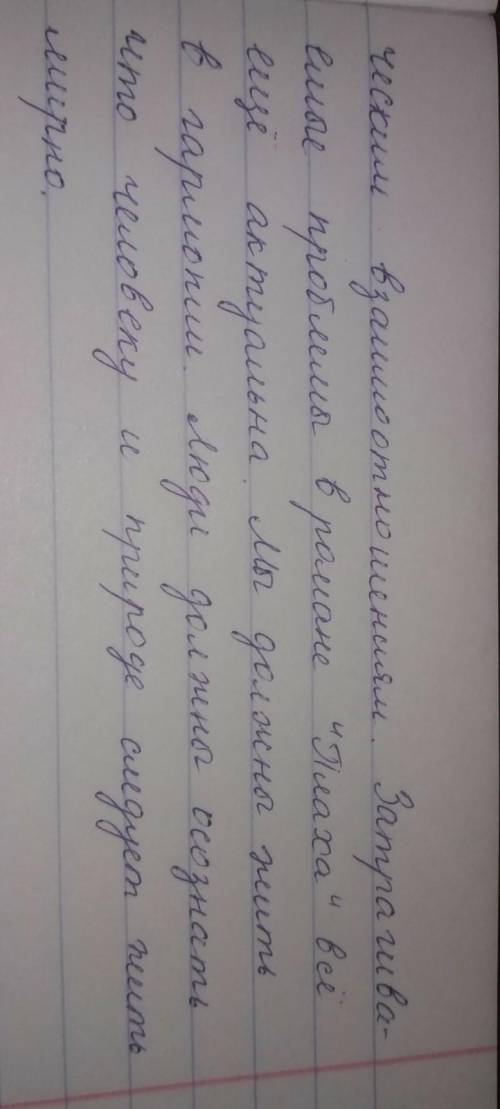 ческим взаимоотношениям. Затрагива-
емые проблемы в романе "Плаха" всё
ещё актуальна. Мы должны жить
в гармонии. Люди должны осознать
что человеку и природе следует жить
мирно.